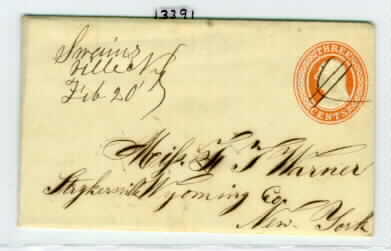 13391
Swainz
ville N Y
Feb 20
THREE
CENTS
Miss H T Warner
Strykersville Wyoming Co
New York